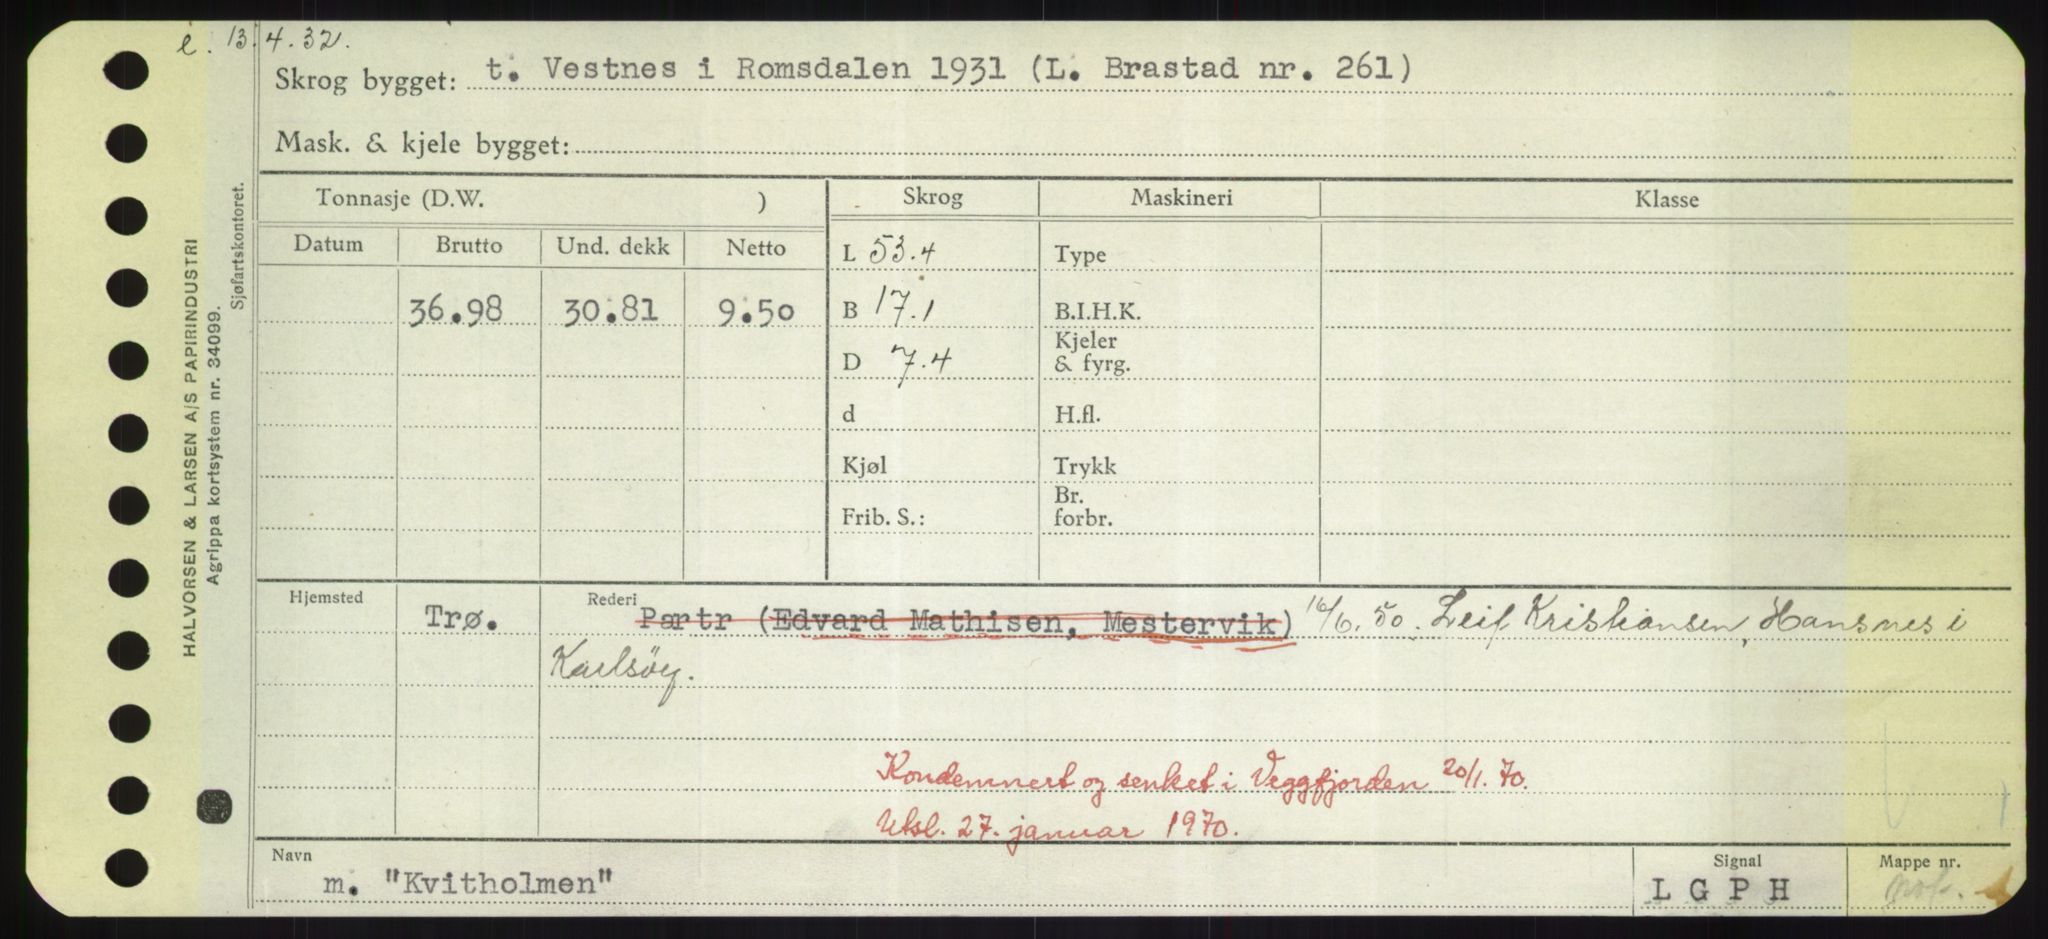 e. 13.4.32.
Skrog bygget: t. Vestnes i Romsdalen 1931 (L. Brastad nr. 261)
Mask. & kjele bygget:
Tonnasje (D.W. ) Skrog Maskineri Klasse
Datum Brutto Und. dekk Netto L 53.4 Type
36.98 30.81 9.50 B 17.1 B.I.H.K.
D 7.4 Kjeler & fyrg.
d H.fl.
Kjøl Trykk
Frib. S.: Br. forbr.
Hjemsted Trø. Rederi Partr (Edvard Mathisen, Mestervik) 16/6.50. Leif Kristiansen, Hansnes i
Karlsöy.
Kondemnert og senket i Veggfjorden 20/1.70.
Utsl. 27. januar 1970.
Navn m. "Kvitholmen" Signal L G P H Mappe nr.
HALVORSEN & LARSEN A/S PAPIRINDUSTRI
Agrippa kortsystem nr. 34099.
Sjøfartskontoret.